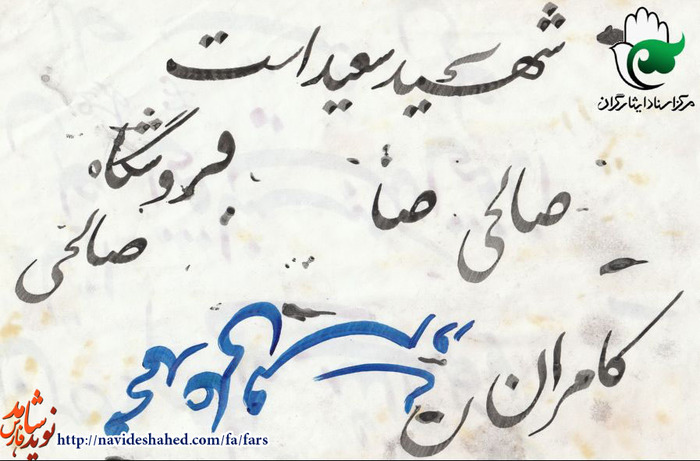 شهید سعید است
مرکز اسناد ایثارگران
فروشگاه
صالحی صا
صالحی
کامران
نوید شاهد
فارس
http://navideshahed.com/fa/fars